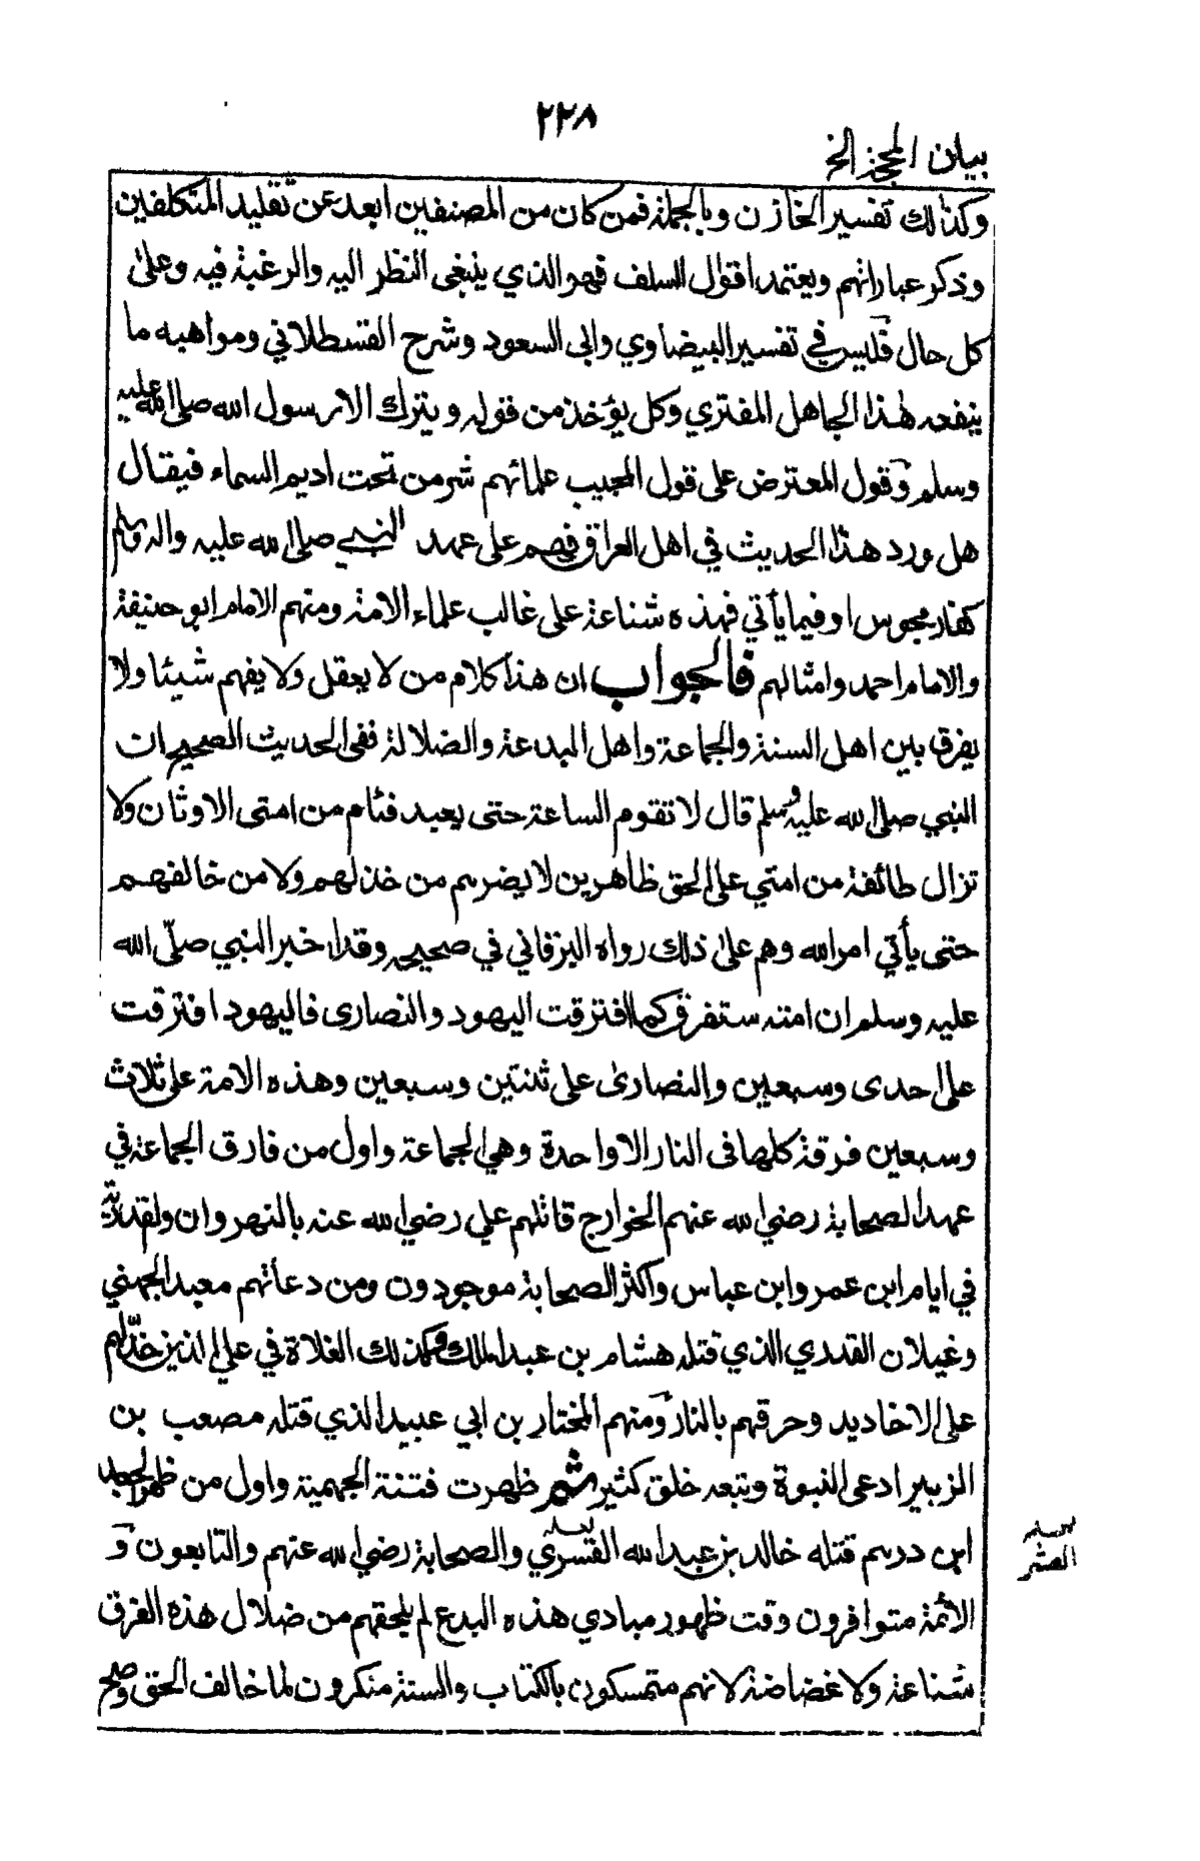 ٢٢٨
بيان المحجة الخ
وكذلك تفسير الخازن وبالجملة فمن كان من المصنفين ابعد عن تقليد المتكلفين
وذكر عباراتهم ويعتمد اقوال السلف فهو الذي ينبغى النظر اليه والرغبة فيه وعلى
كل حال فليس في تفسير البيضاوي وابى السعود وشرح القسطلاني ومواهبه ما
ينفعه لهذا الجاهل المفتري وكل يؤخذ من قوله ويترك الا رسول الله صلى الله عليه
وسلم وقول المعترض على قول المجيب علمائهم شر من تحت اديم السماء فيقال
هل ورد هذا الحديث في اهل العراق فهم على عهد النبي صلى الله عليه واله وسلم
كفار مجوس او فيما يأتي فهذه شناعة على غالب علماء الامة ومنهم الامام ابو حنيفة
والامام احمد وامثالهم فالجواب ان هذا كلام من لا يعقل ولا يفهم شيئا ولا
يفرق بين اهل السنة والجماعة واهل البدعة والضلالة ففى الحديث الصحيح ان
النبي صلى الله عليه وسلم قال لا تقوم الساعة حتى يعبد فئام من امتى الاوثان ولا
تزال طائفة من امتي على الحق ظاهرين لا يضرهم من خذلهم ولا من خالفهم
حتى يأتي امر الله وهم على ذلك رواه البرقاني في صحيحه وقد اخبر النبي صلّى الله
عليه وسلم ان امته ستفرق كما افترقت اليهود والنصارى فاليهود افترقت
على احدى وسبعين والنصارى على ثنتين وسبعين وهذه الامة على ثلاث
وسبعين فرقة كلها فى النار الا واحدة وهي الجماعة واول من فارق الجماعة في
عهد الصحابة رضي الله عنهم الخوارج قاتلهم علي رضي الله عنه بالنهروان والقدرية
في ايام ابن عمر وابن عباس واكثر الصحابة موجودون ومن دعاتهم معبد الجهني
وغيلان القدري الذي قتله هشام بن عبد الملك وكذلك الغلاة في علي الذين خدّ لهم
على الاخاديد وحرقهم بالنار ومنهم المختار بن ابي عبيد الذي قتله مصعب بن
الزبير ادعى النبوة وتبعه خلق كثير ثم ظهرت فتنة الجهمية واول من ظهر الجعد
ابن درهم قتله خالد بن عبد الله القسري والصحابة رضي الله عنهم والتابعون و
الائمة متوافرون وقت ظهور مبادي هذه البدع لم يلحقهم من ضلال هذه الفرق
شناعة ولا غضاضة لانهم متمسكون بالكتاب والسنة منكرون لما خالف الحق وصح